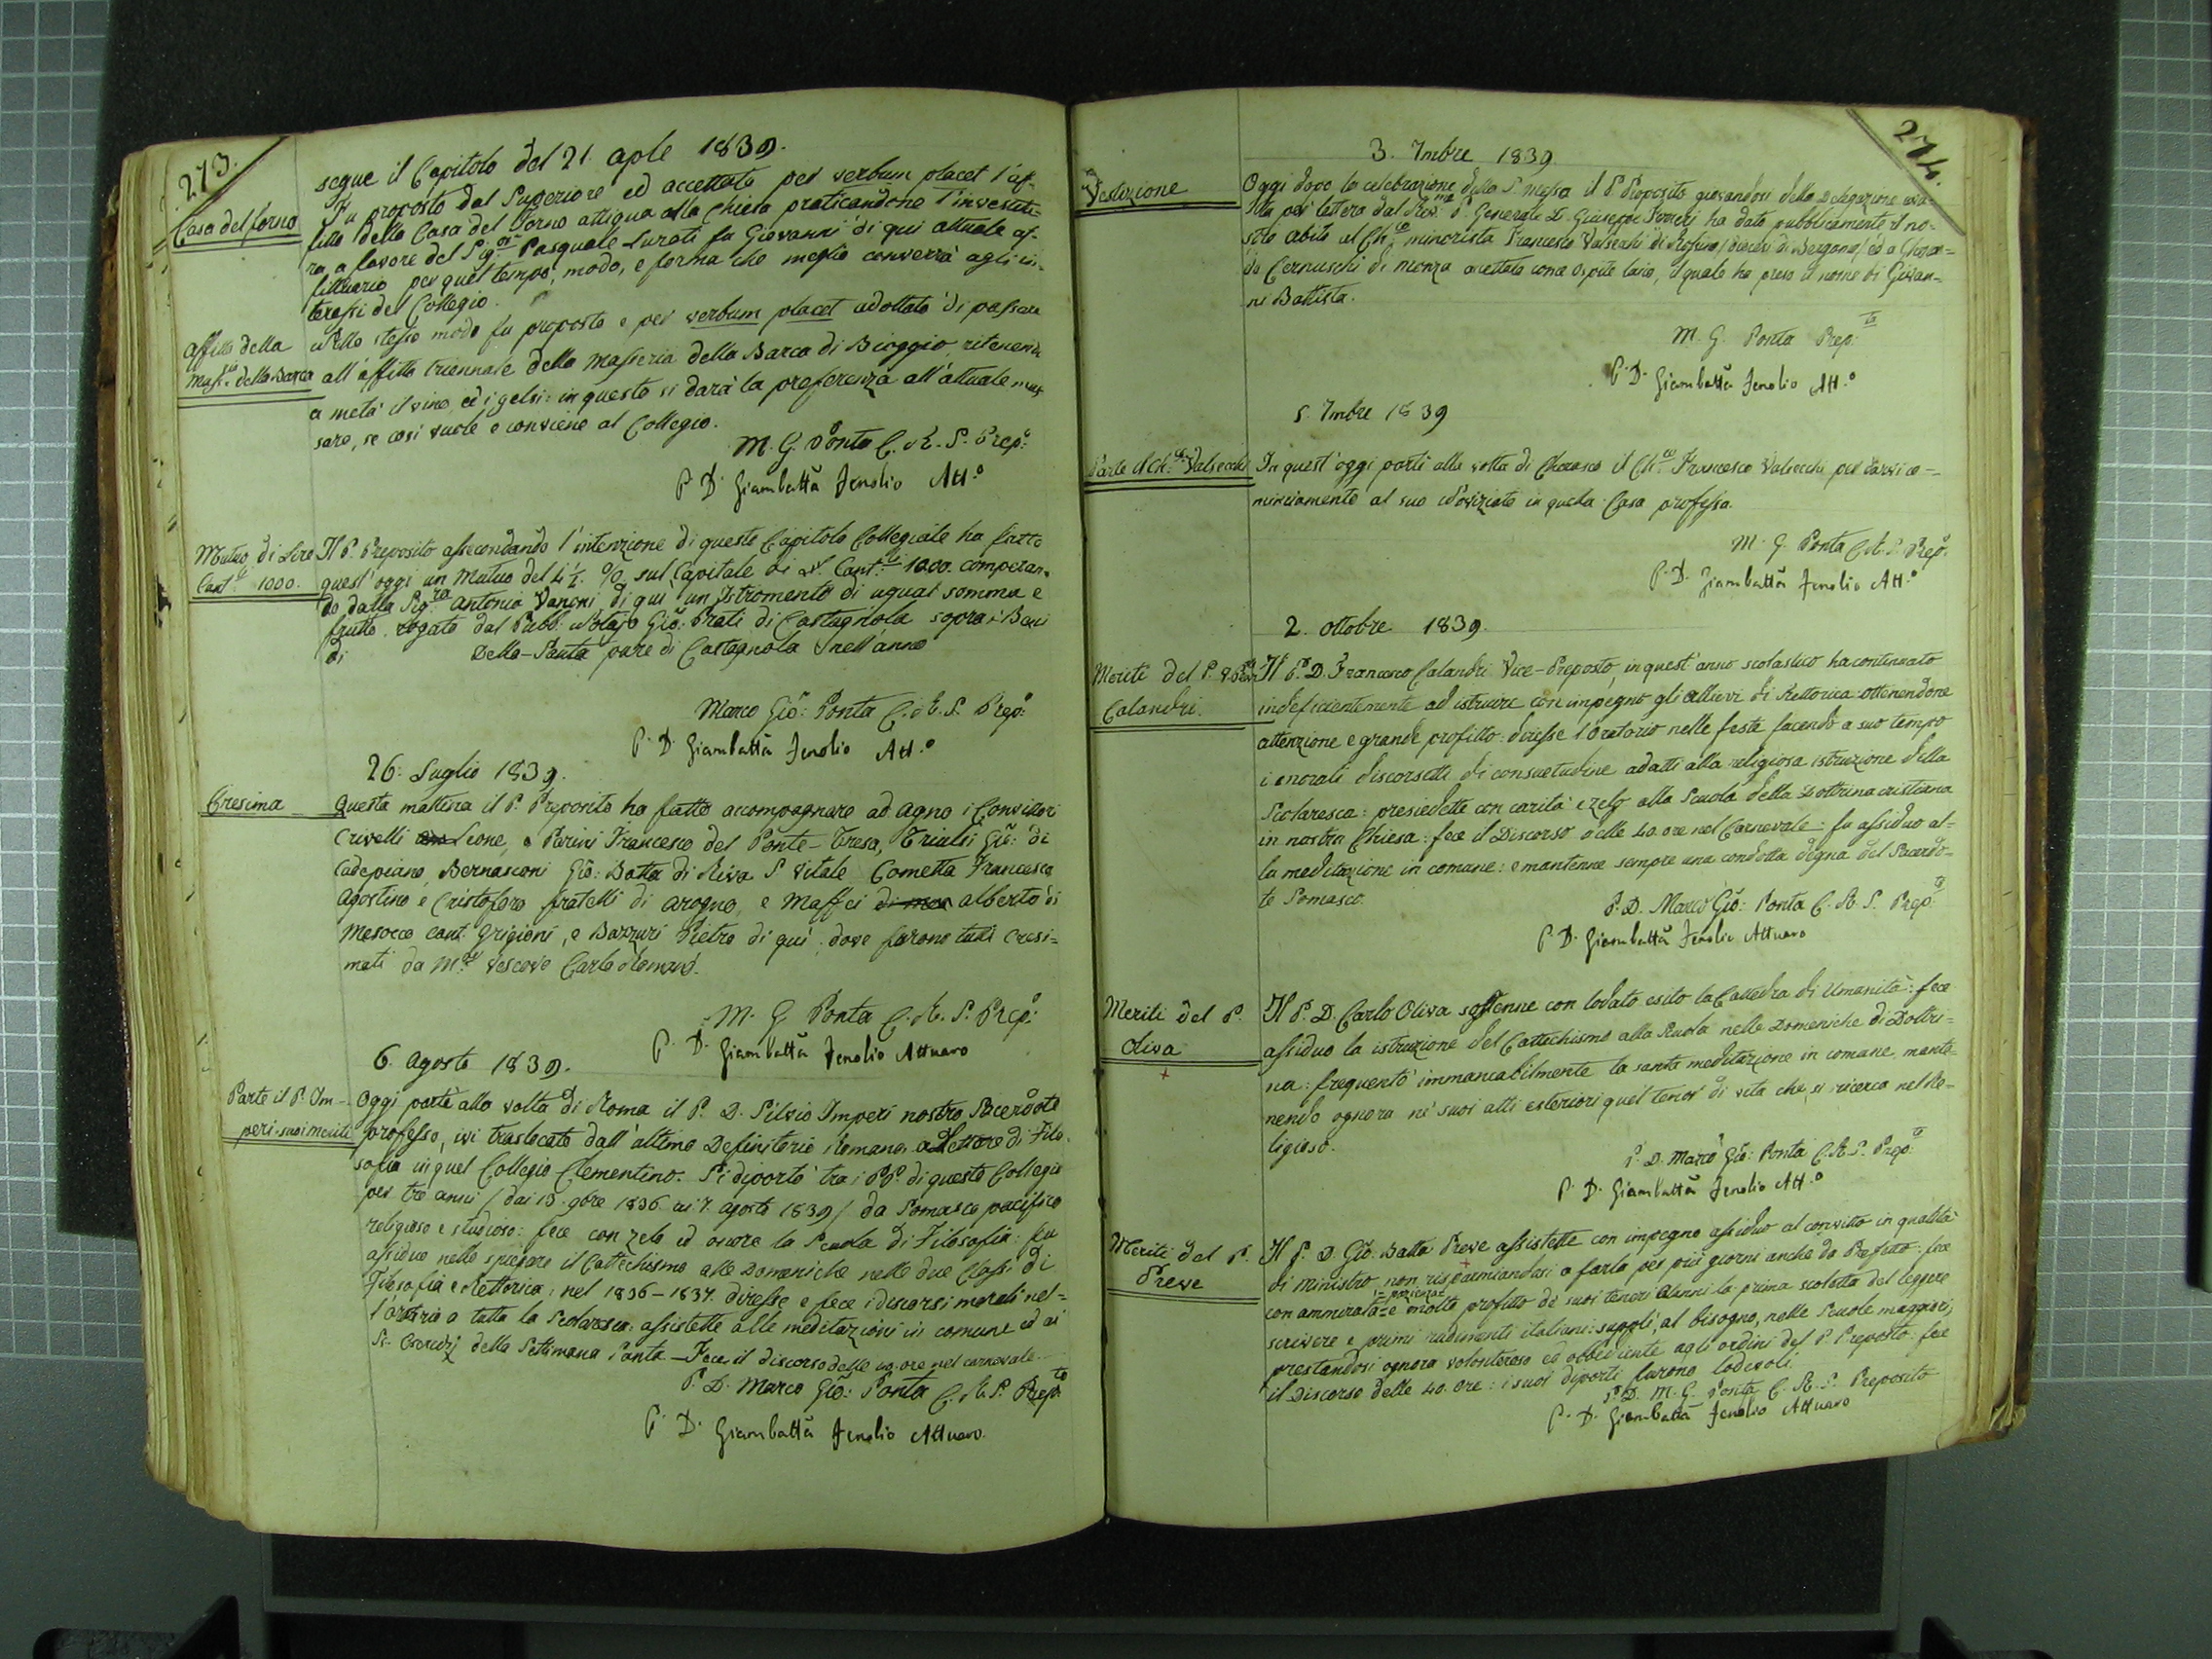 273.
segue il Capitolo del 21. aple 1839.
Casa del forno
Fu proposto dal Superiore ed accettato per verbum placet l'af-
fitto della Casa del Forno attigua alla Chiesa praticandone l'investitu-
ra a favore del Sig.or Pasquale Lurati fu Giovanni di qui attuale af-
fittuario per quel tempo, modo, e forma che meglio converrà agli in-
teressi del Collegio.
Affitto della
Mass.ia della Barca
Nello stesso modo fu proposto e per verbum placet adottato di passare
all'affitto triennale della Masseria della Barca di Bioggio, ritenendo
a metà il vino ed i gelsi: in questo si darà la preferenza all'attuale mas-
saro, se così vuole e conviene al Collegio.
M. G. Ponta C. R. S. Prep.o
P. D. Giambatta Fenolio Att.o
Mutuo di Lire
Cant.li 1000.
Il P. Preposito assecondando l'intenzione di questo Capitolo Collegiale ha fatto
quest'oggi un Mutuo del 4 1/2 % sul Capitale di L. Cant.li 1000. comperan-
do dalla Sig.ra Antonia Vanoni di qui un Istromento di ugual somma e
frutto, rogato dal Pubb. Notajo Gio: Prati di Castagnola sopra i Beni
di Della-Santa pare di Castagnola nell'anno
Marco Gio: Ponta C. R. S. Prep.o
P. D. Giambatta Fenolio Att.o
26. Luglio 1839.
Cresima
Questa mattina il P. Preposito ha fatto accompagnare ad Agno i Convittori
Crivelli Leone, e Perini Francesco del Ponte-Tresa, Trialdi Gio: di
Cadepiano, Bernasconi Gio: Batta di Riva S. Vitale Cometta Francesco
Agostino e Cristoforo fratelli di Arogno, e Maffei Alberto di
Mesocco cant. Grigioni, e Bazzuri Pietro di quì, dove furono tutti cresi-
mati da M.r Vescovo Carlo Romanò.
M. G. Ponta C. R. S. Prep.o
P. D. Giambatta Fenolio Attuaro
6. Agosto 1839.
Parte il P. Im-
peri. suoi meriti
Oggi partì alla volta di Roma il P. D. Silvio Imperi nostro Sacerdote
professo, ivi traslocato dall'ultimo Definitorio Romano a Lettore di Filo-
sofia in quel Collegio Clementino. Si diportò tra i PP. di questo Collegio
per tre anni (dai 13. 9bre 1836. ai 7. agosto 1839) da Somasco pacifico
religioso e studioso: fece con zelo ed onore la Scuola di Filosofia: fu
assiduo nello spiegare il Cattechismo alle Domeniche nelle due Classi di
Filosofia e Rettorica: nel 1836-1837. diresse e fece i discorsi morali nel-
l'oratorio a tutta la Scolaresca: assistette alle meditazioni in comune ed ai
S. Esercizj della Settimana Santa - Fece il discorso delle 40. ore nel carnovale.
P. D. Marco Gio: Ponta C. R. S. Prep.to
P. D. Giambatta Fenolio Attuaro.
274.
3. 7mbre 1839
Vestizione
Oggi dopo la celebrazione della S. Messa il P. Preposito giovandosi della Delegazione avu-
ta per lettera dal Rev.mo P. Generale D. Giuseppe Ferreri ha dato pubblicamente il no-
stro abito al Ch.co minorista Francesco Valsecchi di Rossino (diocesi di Bergamo) ed a
Cernuschi di Monza accettato come ospite laico, il quale ha preso il nome di Giovan-
ni Battista.
M. G. Ponta Prep.to
P. D. Giambatta Fenolio Att.o
5. 7mbre 1839
Parte il Ch.co Valsecchi
In quest'oggi partì alla volta di Cherasco il Ch.co Francesco Valsecchi per darvi co-
minciamento al suo Noviziato in quella Casa professa.
M. G. Ponta C. R. S. Prep.o
P. D. Giambatta Fenolio Att.o
2. Ottobre 1839.
Meriti del P.
Calandri.
Il P. D. Francesco Calandri Vice-Preposto, in quest'anno scolastico ha continuato
indeficientemente ad istruire con impegno gli allievi di Rettorica ottenendone
attenzione e grande profitto: diresse l'Oratorio nelle feste facendo a suo tempo
i morali discorsetti di consuetudine adatti alla religiosa istruzione della
Scolaresca: presiedette con carità e zelo alla Scuola della Dottrina cristiana
in nostra Chiesa: fece il Discorso delle 40. ore nel Carnevale: fu assiduo al-
la meditazione in comune: e mantenne sempre una condotta degna del Sacerdo-
te Somasco.
P. D. Marco Gio: Ponta C. R. S. Prep.to
P. D. Giambatta Fenolio Attuaro
Meriti del P.
Oliva
Il P. D. Carlo Oliva sostenne con lodato esito la Cattedra di Umanità: fece
assiduo la istruzione del Cattechismo alla Scuola nelle Domeniche di Dottri-
na: frequentò immancabilmente la santa meditazione in comune, mante-
nendo ognora ne' suoi atti esteriori quel tenor di vita che si ricerca nel Re-
ligioso.
P. D. Marco Gio: Ponta C. R. S. Prep.to
P. D. Giambatta Fenolio Att.o
Meriti del P.
Preve
Il P. D. Gio. Batta Preve assistette con impegno assiduo al convitto in qualità
di Ministro non risparmiandosi a farla per più giorni anche da Prefetto: fece
con ammirata = pazienza = e molto profitto de' suoi teneri alunni la prima scoletta del leggere
scrivere e primi rudimenti italiani: supplì, al bisogno, nelle Scuole maggiori,
prestandosi ognora volonteroso ed obbediente agli ordini del P. Preposto: fece
il Discorso delle 40. Ore: i suoi diporti furono lodevoli.
P. D. M. G. Ponta C. R. S. Preposito
P. D. Giambatta Fenolio Attuaro